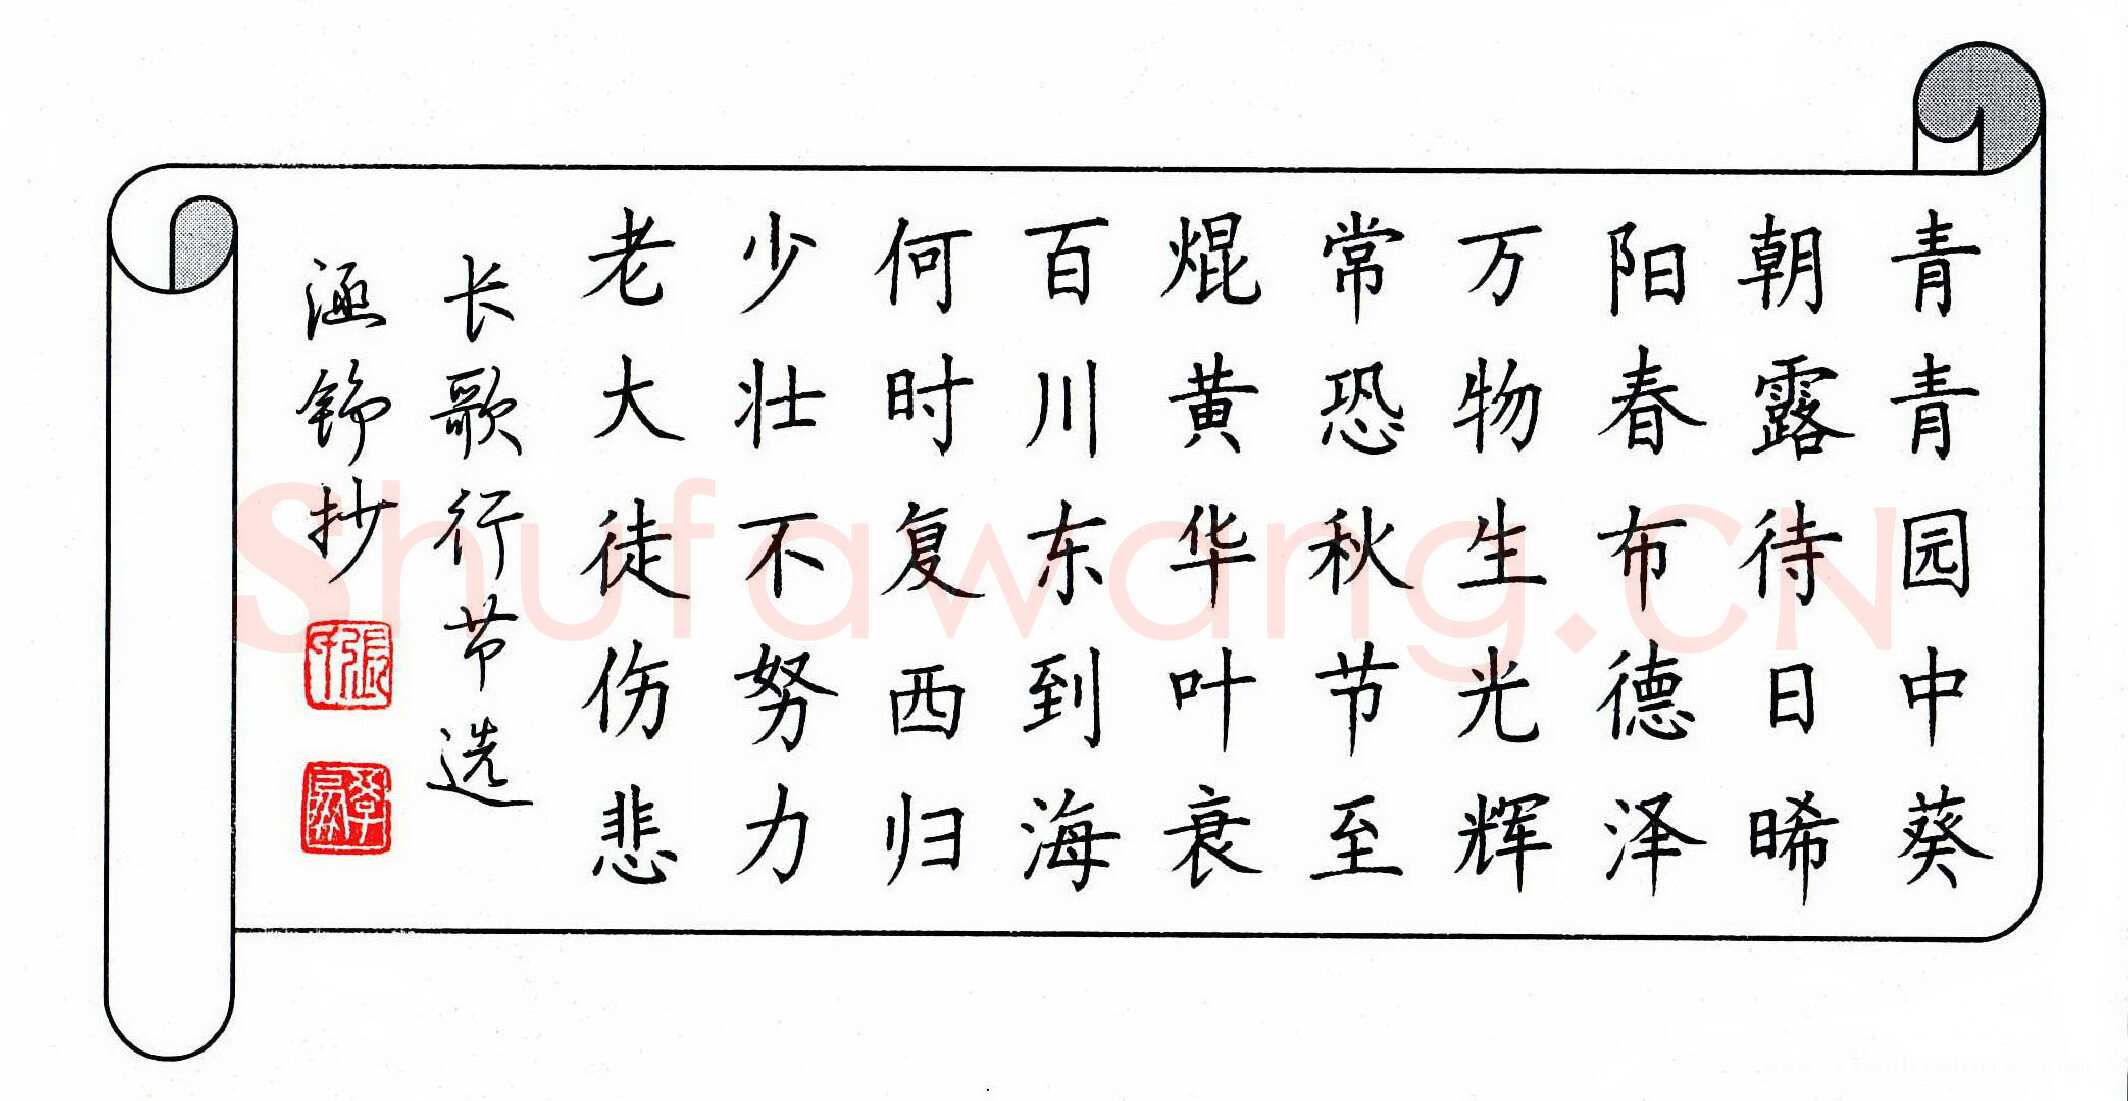 青青园中葵
朝露待日晞
阳春布德泽
万物生光辉
常恐秋节至
焜黄华叶衰
百川东到海
何时复西归
少壮不努力
老大徒伤悲
长歌行节选
涵铮抄
Shufawang.CN